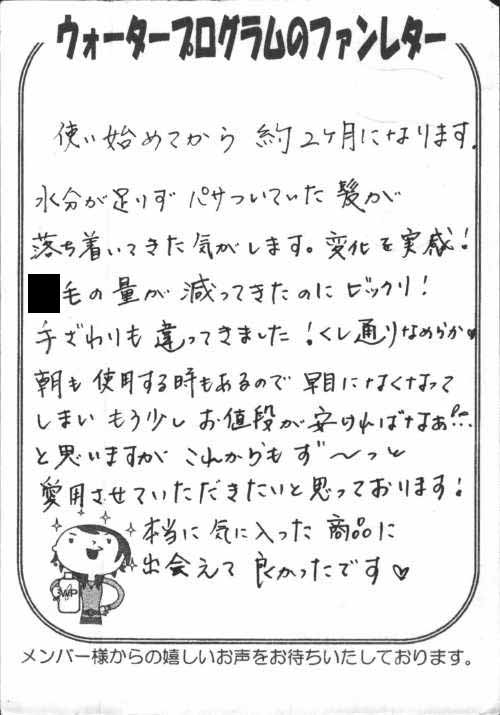 ウォータープログラムのファンレター
使い始めてから 約2ヶ月になります。
水分が足りず パサついていた 髪が
落ち着いてきた気がします。変化を実感!
毛の量が 減ってきたのに ビックリ!
手ざわりも 違ってきました!くし通りなめらか♥
朝も使用する時もあるので 早目になくなって
しまい もう少し お値段が 安ければなぁ…
と思いますが これからも ず〜っと
愛用させていただきたいと思っております!
本当に気に入った 商品に
出会えて 良かったです♡
WP
メンバー様からの嬉しいお声をお待ちいたしております。